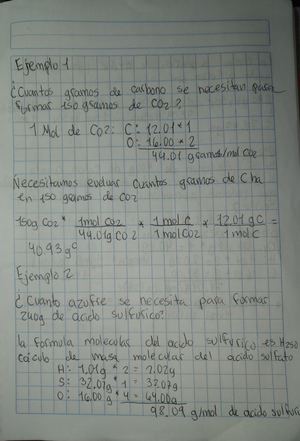 Ejemplo 1
¿Cuantos gramos de carbono se necesitan para
formar 150 gramos de CO2?
1 Mol de CO2: C: 12.01 * 1
O: 16.00 * 2
44.01 gramos/mol CO2
Necesitamos evaluar cuantos gramos de C ha
en 150 gramos de CO2
150g CO2 * 1mol CO2 / 44.01g CO2 * 1 mol C / 1 mol CO2 * 12.01 g C / 1 mol C =
40.93 g C
Ejemplo 2
¿Cuanto azufre se necesita para formar
240g de acido sulfurico?
la formula molecular del acido sulfurico es H2SO
calculo de masa molecular del acido sulfato
H: 1.01g * 2 = 2.02g
S: 32.07g * 1 = 32.07g
O: 16.00g * 4 = 64.00g
98.09 g/mol de acido sulfuric